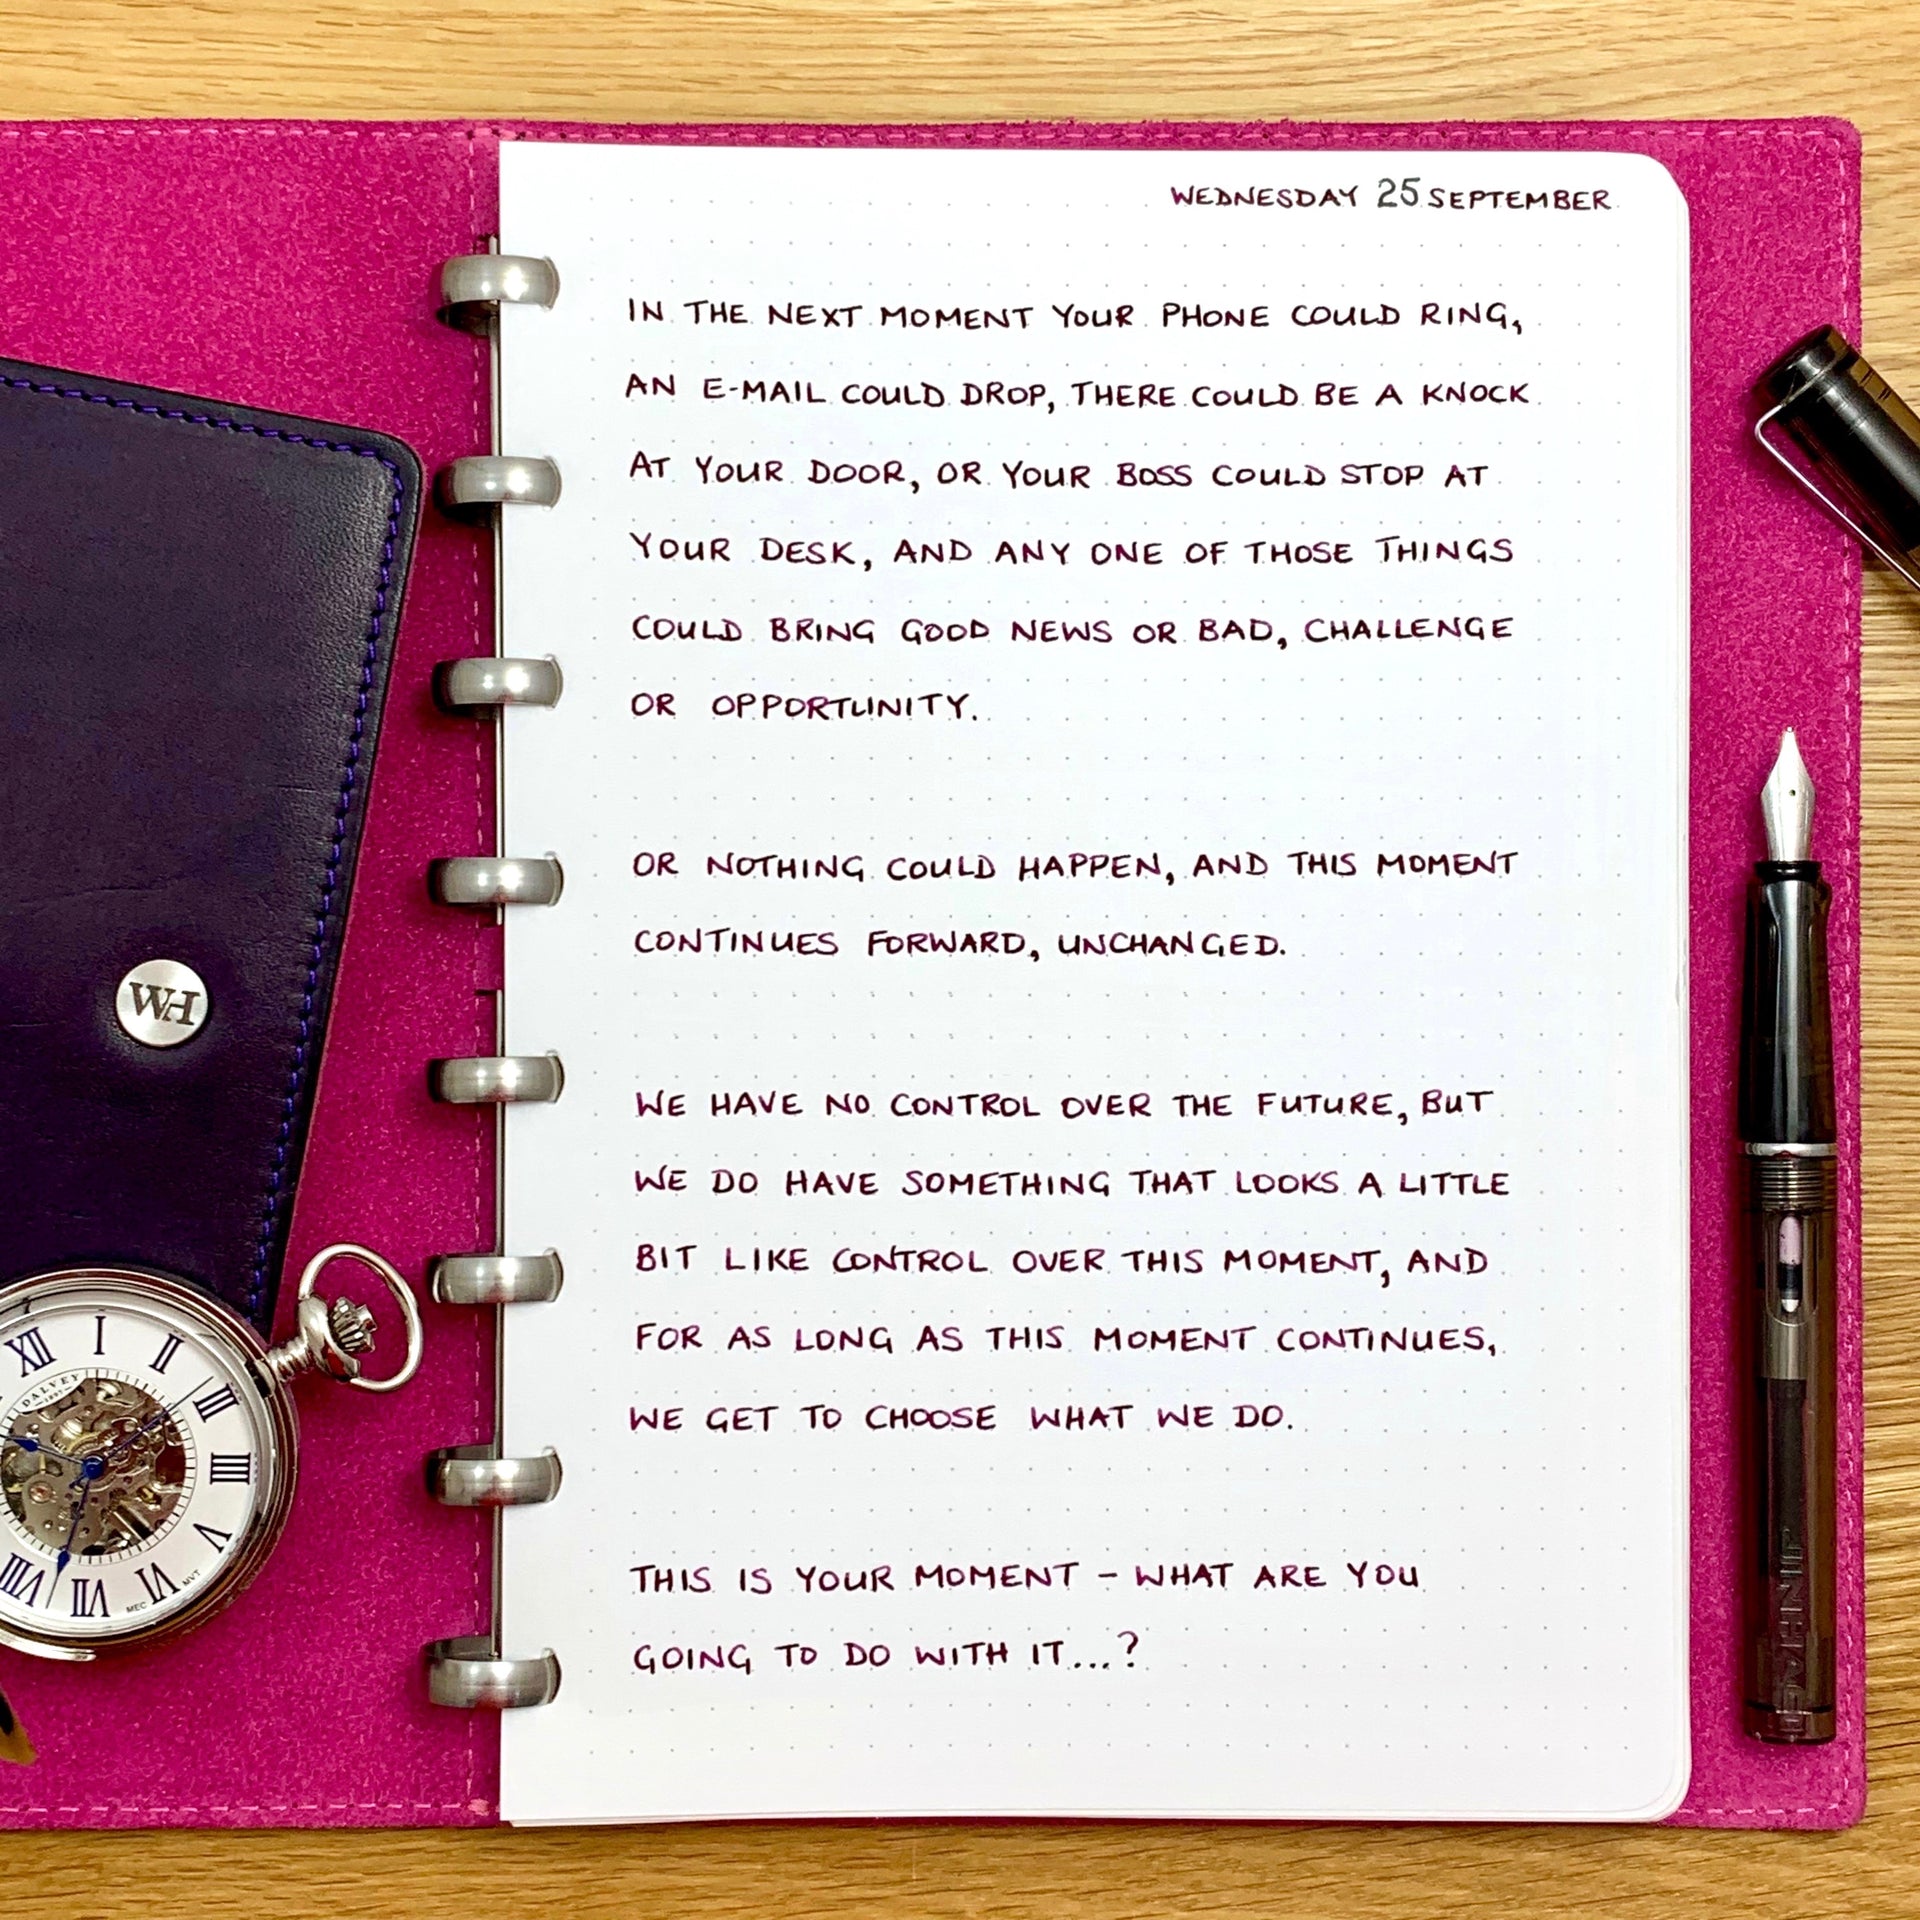 WEDNESDAY 25 SEPTEMBER
IN THE NEXT MOMENT YOUR PHONE COULD RING,
AN E-MAIL COULD DROP, THERE COULD BE A KNOCK
AT YOUR DOOR, OR YOUR BOSS COULD STOP AT
YOUR DESK, AND ANY ONE OF THOSE THINGS
COULD BRING GOOD NEWS OR BAD, CHALLENGE
OR OPPORTUNITY.
OR NOTHING COULD HAPPEN, AND THIS MOMENT
CONTINUES FORWARD, UNCHANGED.
WE HAVE NO CONTROL OVER THE FUTURE, BUT
WE DO HAVE SOMETHING THAT LOOKS A LITTLE
BIT LIKE CONTROL OVER THIS MOMENT, AND
FOR AS LONG AS THIS MOMENT CONTINUES,
WE GET TO CHOOSE WHAT WE DO.
THIS IS YOUR MOMENT - WHAT ARE YOU
GOING TO DO WITH IT...?
WH
XII
I
II
III
IIII
V
VI
VII
VIII
DALVEY
MEC
MVT
JINHAO